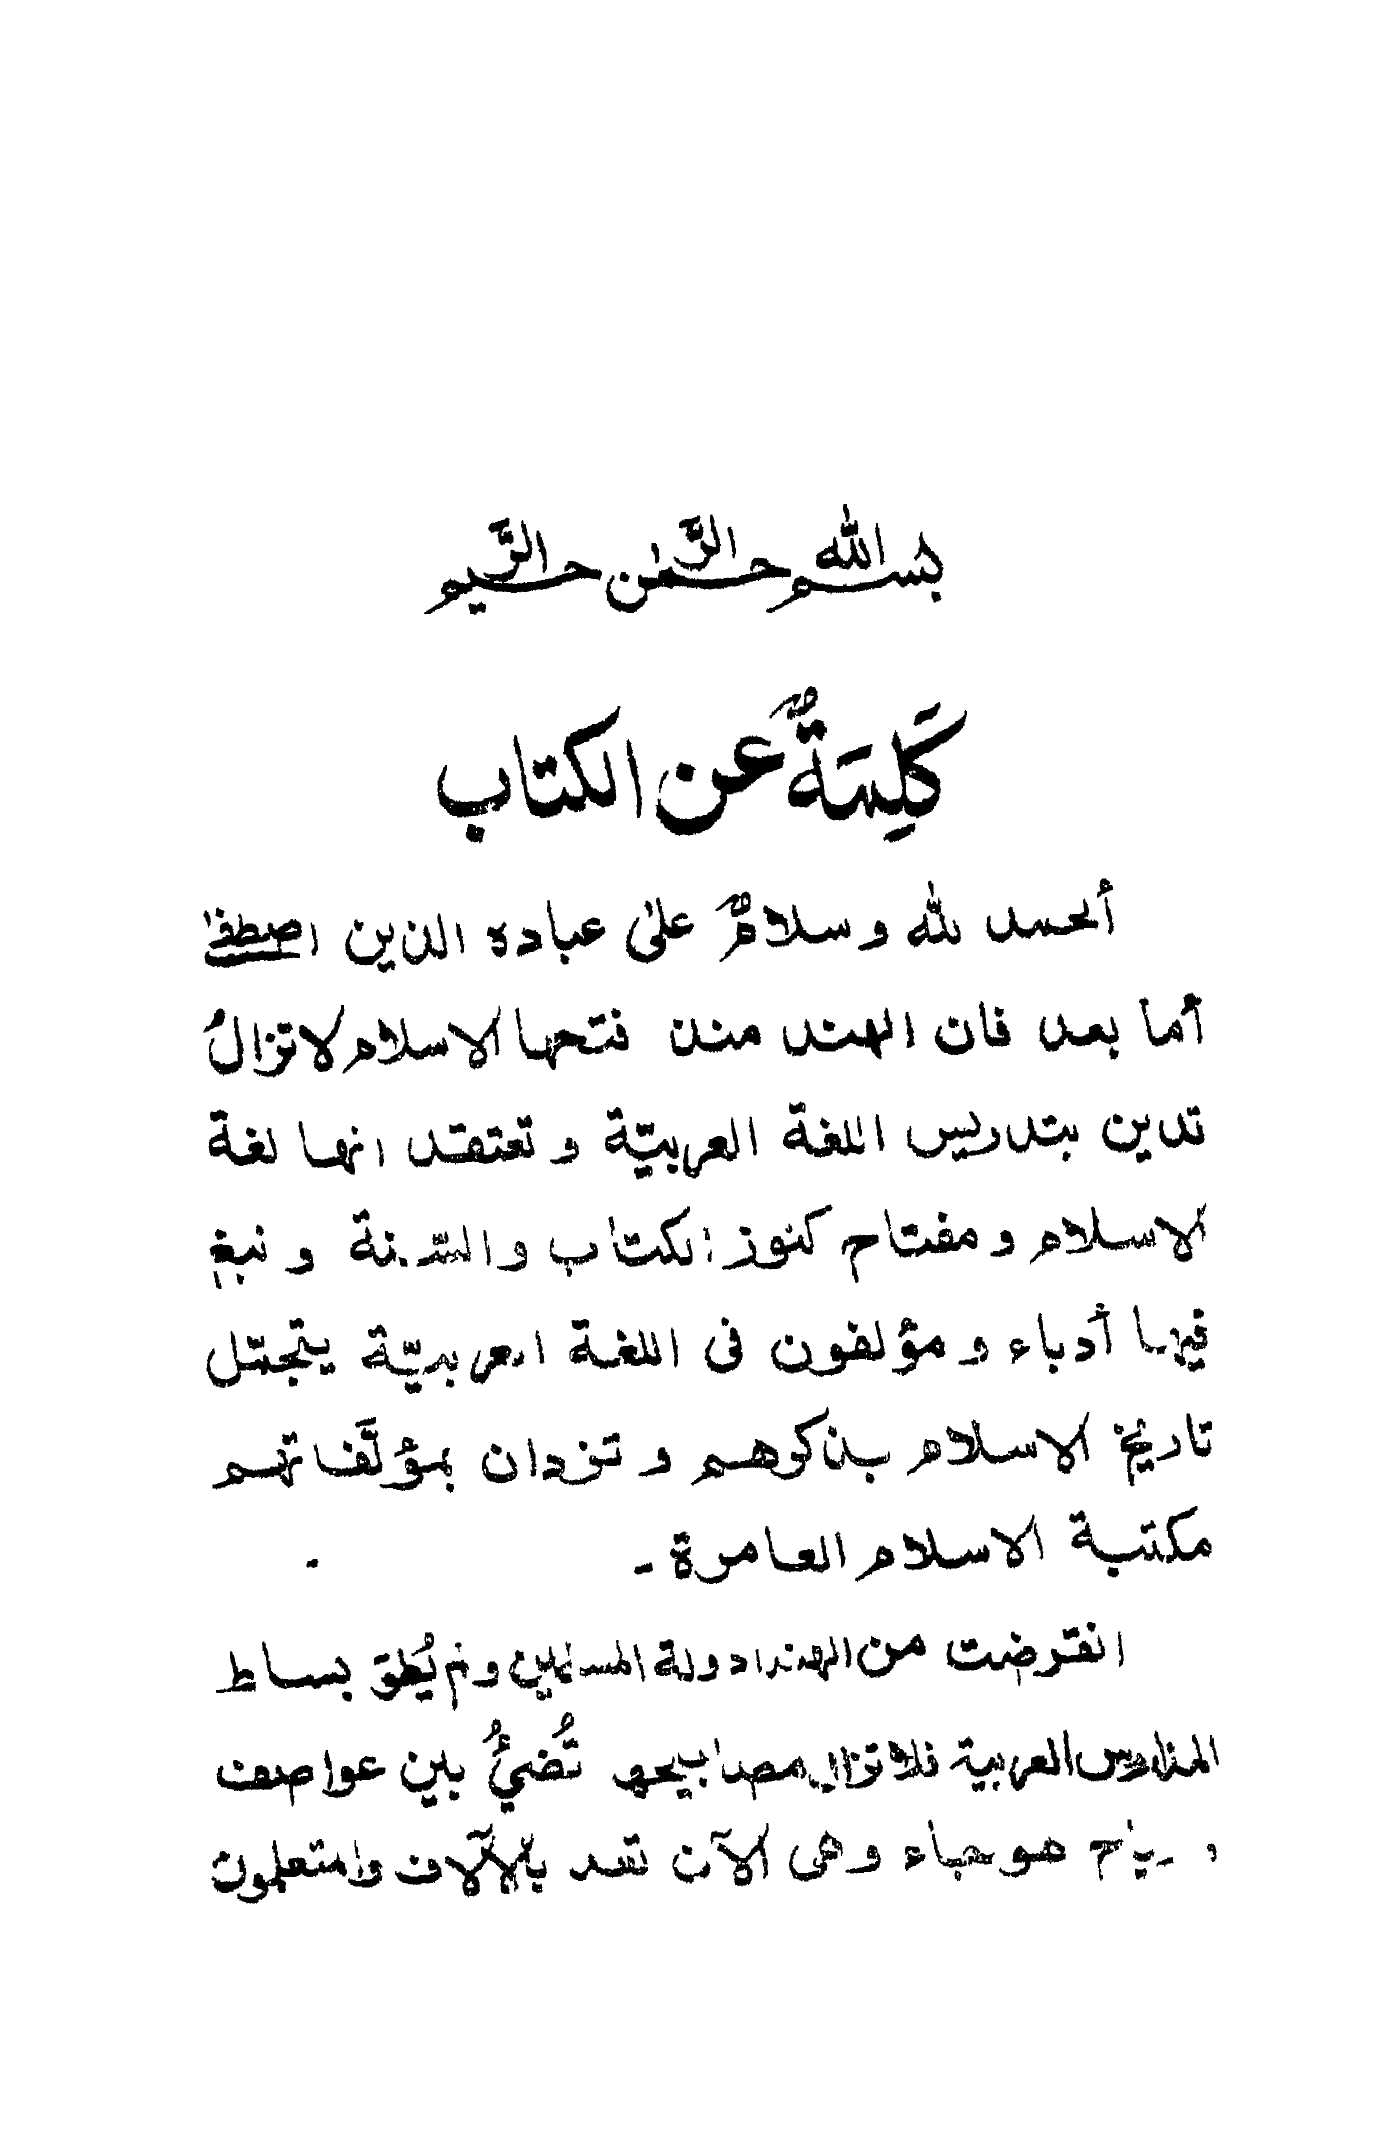 بسم الله الرَّحمٰن الرَّحيم
كَلِمَةٌ عن الكتاب
ألحمد لله وسلامٌ علىٰ عباده الذين اصطفىٰ
أما بعد فان الهند منذ فتحها الاسلام لا تزالُ
تدين بتدريس اللغة العربيّة و تعتقد انها لغة
الاسلام و مفتاح كنوز الكتاب والسّنة و نبغ
فيها أدباء و مؤلفون فى اللغة العربيّة يتجمّل
تاريخ الاسلام بذكرهم و تزدان بمؤلَّفاتهم
مكتبة الاسلام العامرة -
انقرضت من الهند دولة المسلمين ولم يُطوَ بساط
المدارس العربية فلا تزال مصابيحها تُضيُّ بين عواصف
و رياح هوجاء وهى الآن تعد بالآلاف والمتعلمون